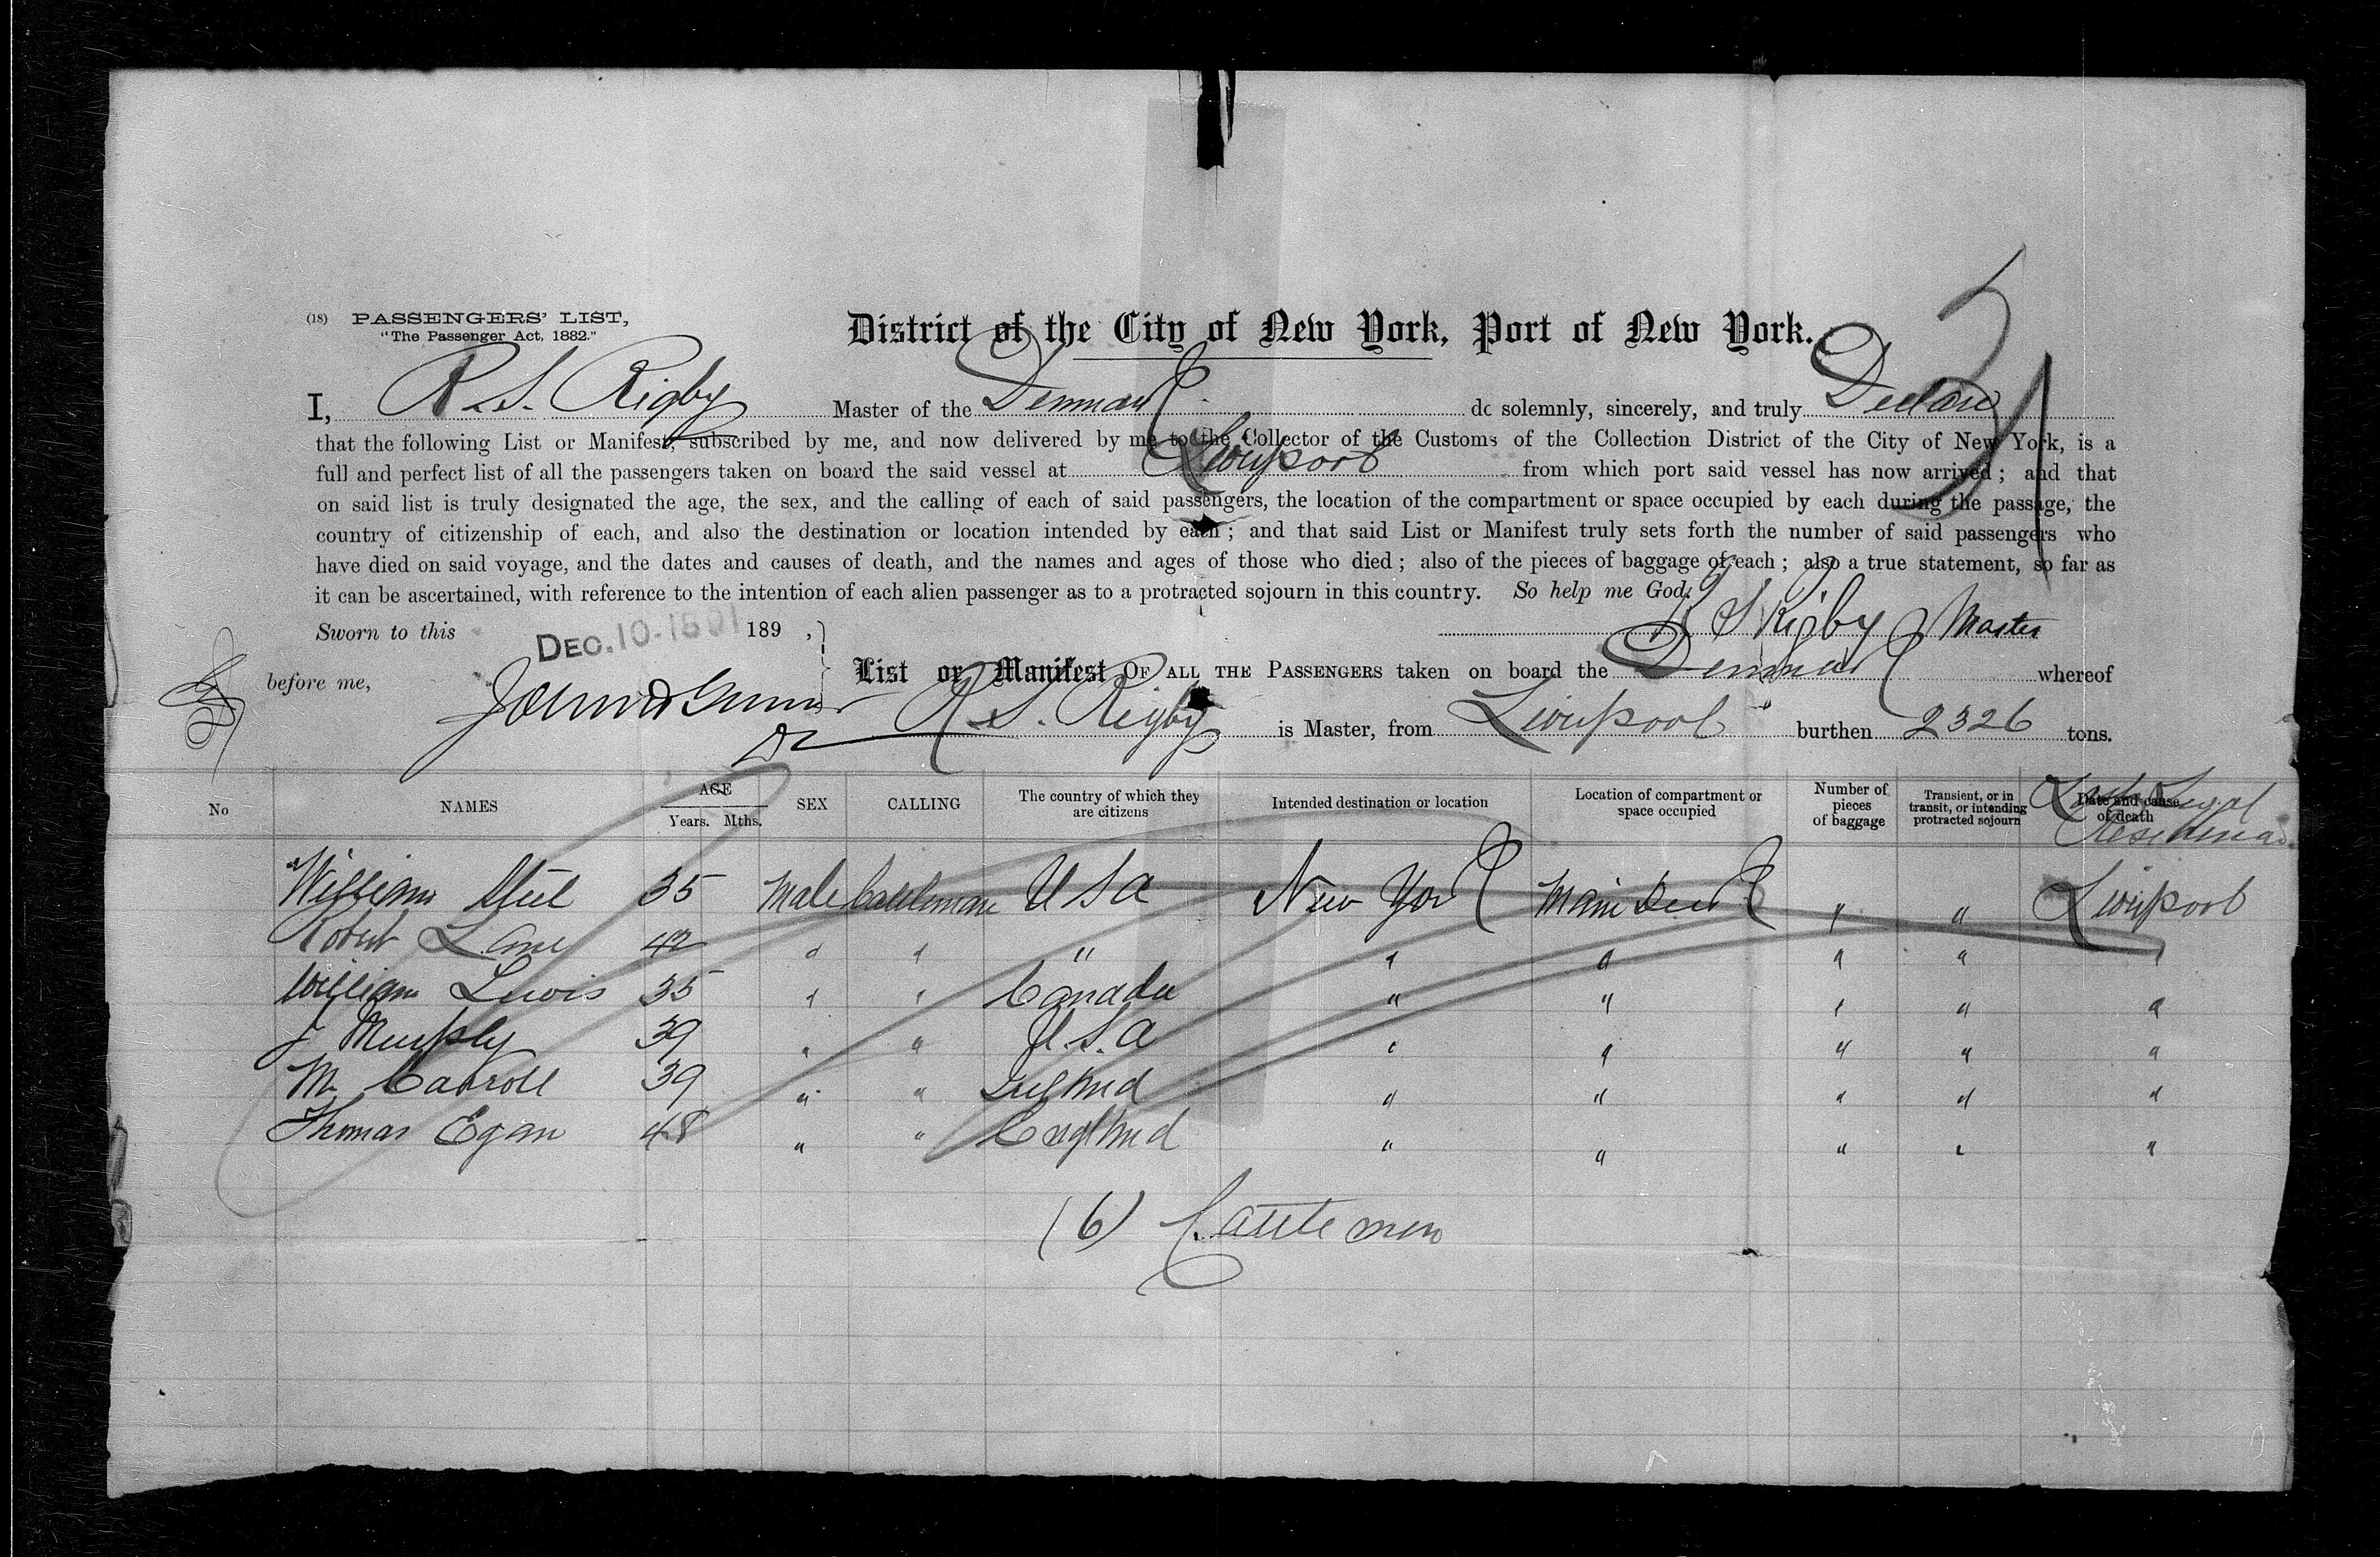 (18) PASSENGERS' LIST,
"The Passenger Act, 1882."
District of the City of New York, Port of New York.
I, R. S. Rigby Master of the Denmark do solemnly, sincerely, and truly Declare
that the following List or Manifest, subscribed by me, and now delivered by me to the Collector of the Customs of the Collection District of the City of New York, is a
full and perfect list of all the passengers taken on board the said vessel at Liverpool from which port said vessel has now arrived; and that
on said list is truly designated the age, the sex, and the calling of each of said passengers, the location of the compartment or space occupied by each during the passage, the
country of citizenship of each, and also the destination or location intended by each; and that said List or Manifest truly sets forth the number of said passengers who
have died on said voyage, and the dates and causes of death, and the names and ages of those who died; also of the pieces of baggage of each; also a true statement, so far as
it can be ascertained, with reference to the intention of each alien passenger as to a protracted sojourn in this country. So help me God.
R S Rigby Master
Sworn to this DEC. 10 1891 189 ,
before me,
List or Manifest OF ALL THE PASSENGERS taken on board the Denmark whereof
R. S. Rigby is Master, from Liverpool burthen 2326 tons.
No NAMES AGE Years. Mths. SEX CALLING The country of which they are citizens Intended destination or location Location of compartment or space occupied Number of pieces of baggage Transient, or in transit, or intending protracted sojourn Date and cause of death Last Legal Residence
William 35 Male Cattleman U S A New York Main Deck " " Liverpool
Robert Lane 42 " " " " " " " "
William Lewis 35 " " Canada " " " " "
J Murphy 39 " " U.S.A " " " " "
M. Carroll 39 " " Ireland " " " " "
Thomas Egan 48 " " England " " " " "
(6) Cattle men